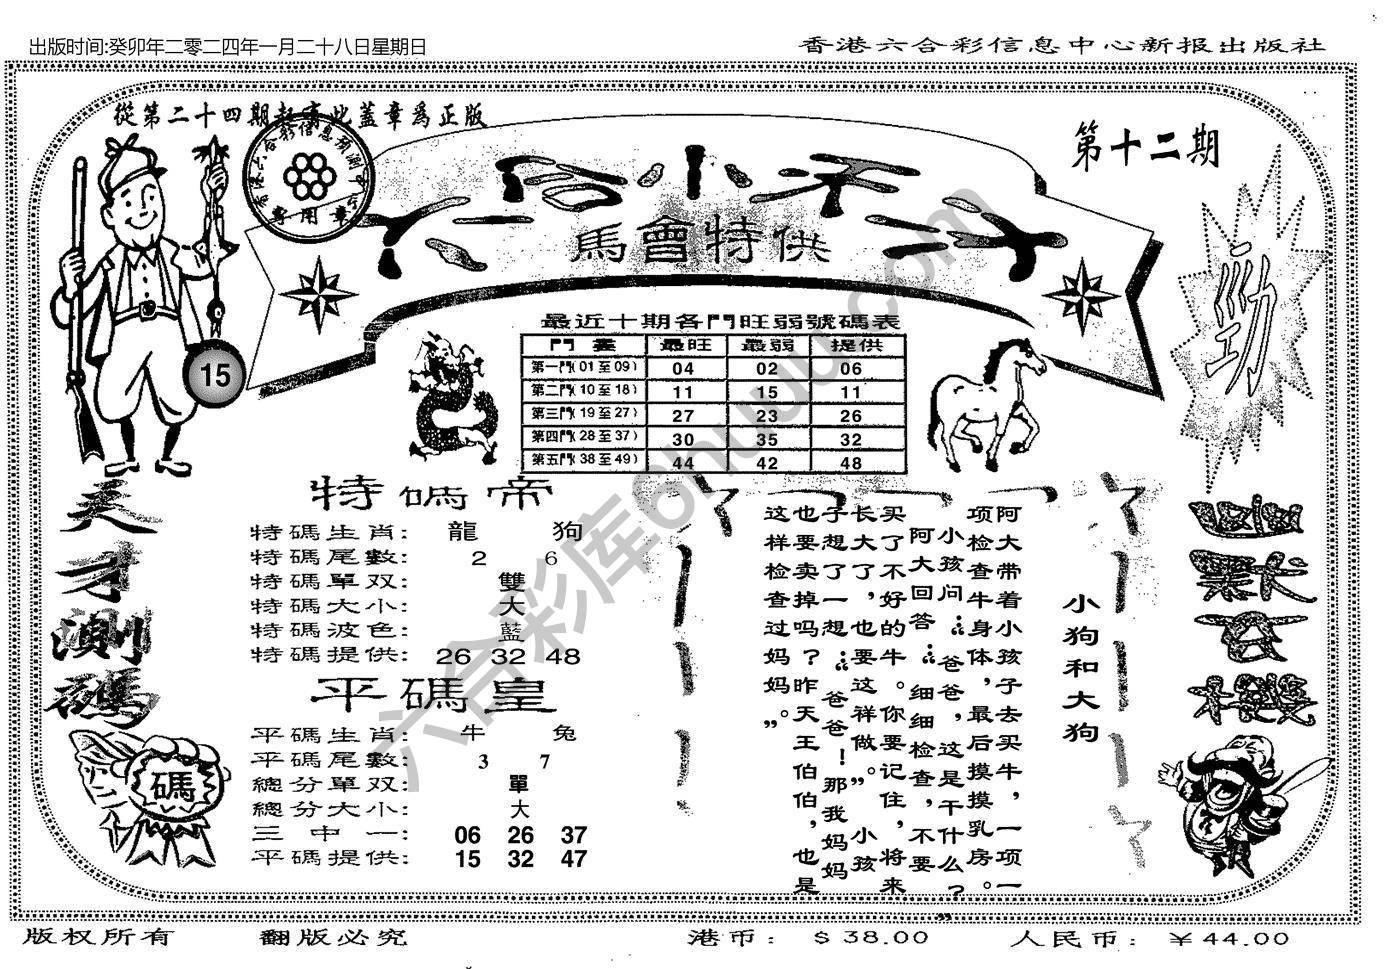 出版时间:癸卯年二零二四年一月二十八日星期日
香港六合彩信息中心新报出版社
從第二十四期起有此蓋章爲正版
第十二期
香港六合彩信息預測中心
專用章
六合小天子
馬會特供
勁
15
最近十期各門旺弱號碼表
門畫 最旺 最弱 提供
第一門(01至09) 04 02 06
第二門(10至18) 11 15 11
第三門(19至27) 27 23 26
第四門(28至37) 30 35 32
第五門(38至49) 44 42 48
天才測碼
特碼帝
特碼生肖: 龍 狗
特碼尾數: 2 6
特碼單双: 雙
特碼大小: 大
特碼波色: 藍
特碼提供: 26 32 48
平碼皇
平碼生肖: 牛 兔
平碼尾數: 3 7
總分單双: 單
總分大小: 大
三中一: 06 26 37
平碼提供: 15 32 47
碼
小狗和大狗
阿大带着小孩子去买牛,一项一
项检查牛身体,最后摸摸乳房。
小孩问:“爸爸,这是干什么?”
阿大回答:“细细检查,不要
买了不好的牛。你要记住,将来
长大了,也要这祥做。”小孩
子想了一想:“爸爸!那我妈妈
也要卖掉吗?昨天王伯伯,也是
这样检查过妈妈。”
六合彩库6huu.com
版权所有
翻版必究
港币: $38.00
人民币: ¥44.00